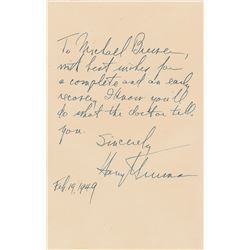 To Michael Brewer,
with best wishes for
a complete and an early
recovery. I know you'll
do what the doctor tells
you.
Sincerely
Harry Truman
Feb. 19, 1949